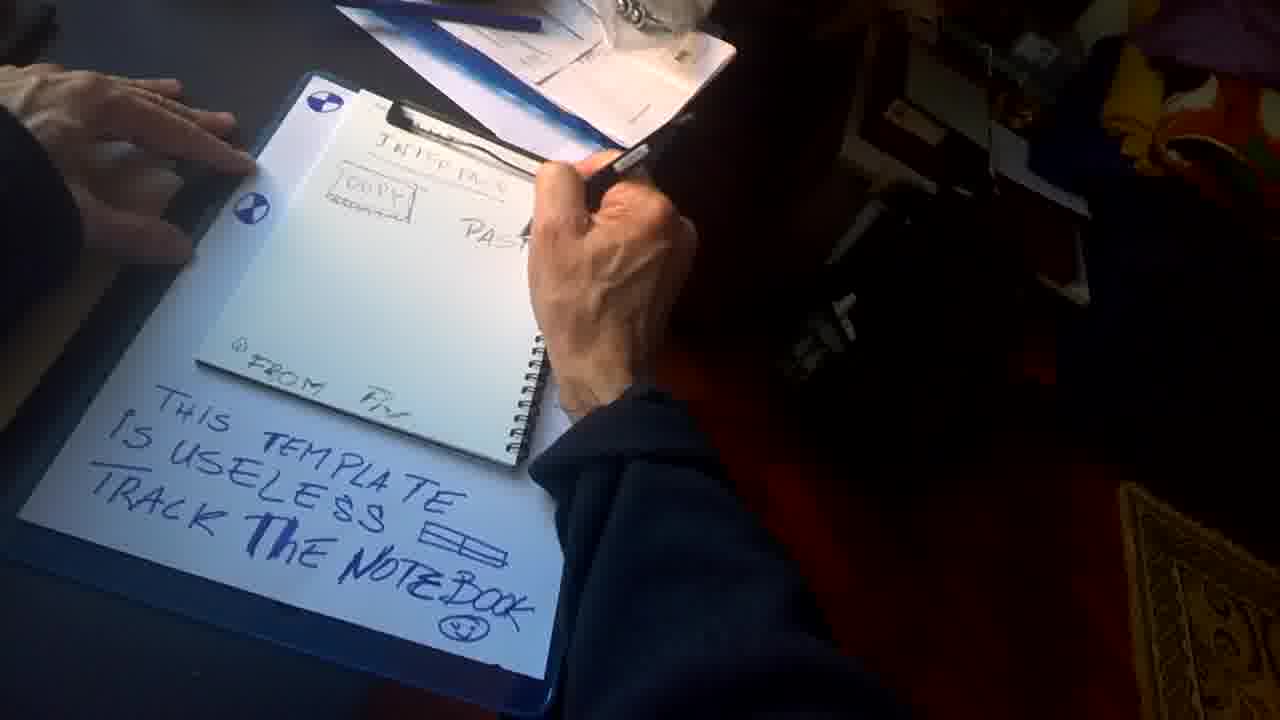 COPY
PAST
FROM
THIS TEMPLATE
IS USELESS
TRACK THE NOTEBOOK